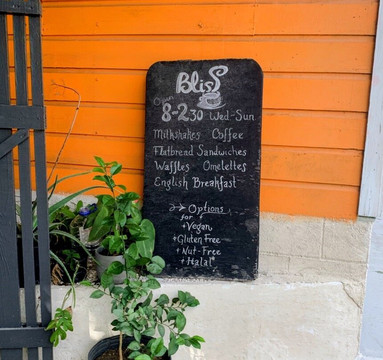 Bliss
Open
8-2:30 Wed-Sun
Milkshakes Coffee
Flatbread Sandwiches
Waffles Omelettes
English Breakfast
Options
for
+Vegan
+Gluten Free
+Nut-Free
+Halal